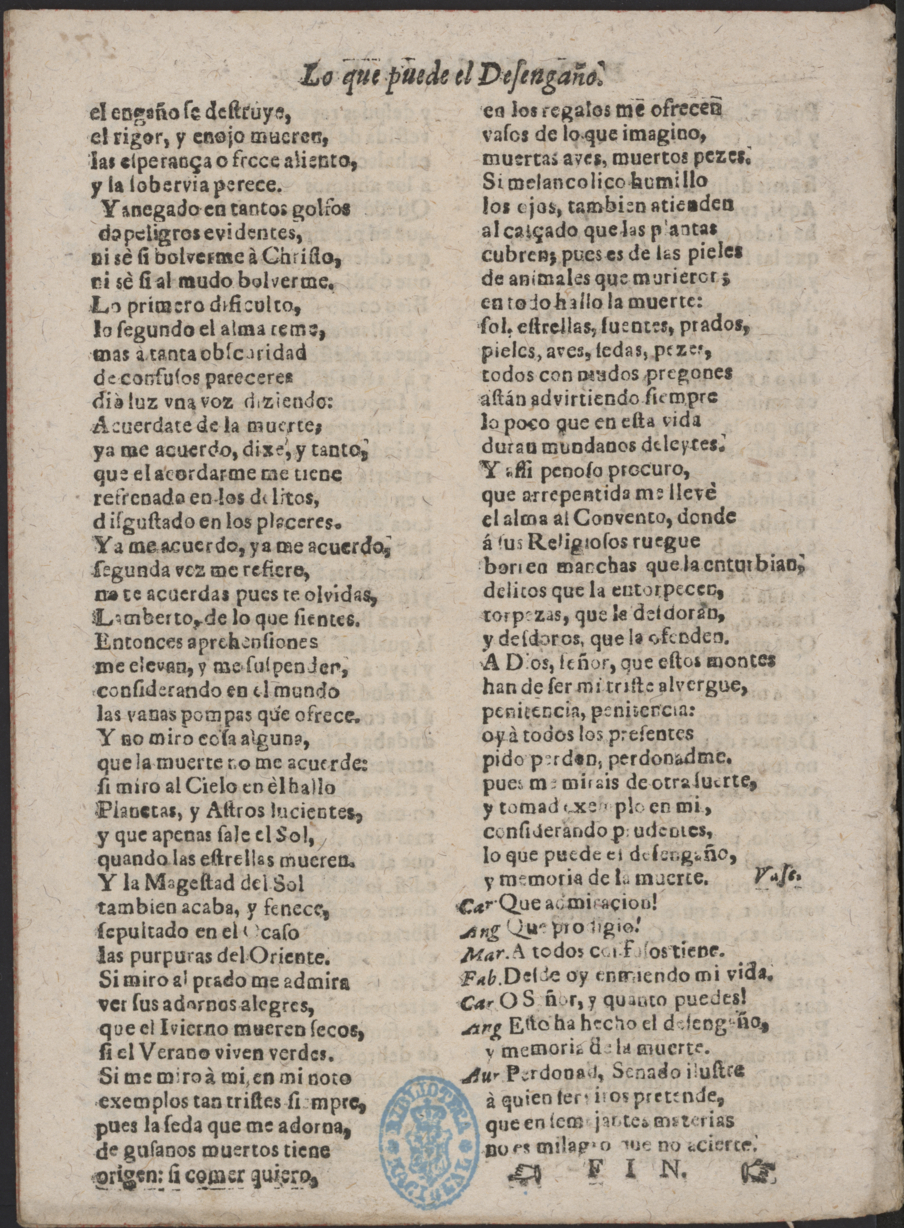 Lo que puede el Deſengaño.
el engaño ſe deſtruye,
el rigor, y enojo mueren,
las eſperança ofrece aliento,
y la ſobervia perece.
Y anegado en tantos golfos
de peligros evidentes,
ni sè ſi bolverme à Chriſto,
ni sè ſi al mudo bolverme.
Lo primero dificulto,
lo ſegundo el alma teme,
mas à tanta obſcuridad
de confuſos pareceres
diò luz vna voz diziendo:
Acuerdate de la muerte,
ya me acuerdo, dixe, y tanto,
que el acordarme me tiene
refrenado en los delitos,
diſguſtado en los placeres.
Ya me acuerdo, ya me acuerdo,
ſegunda vez me refiere,
no te acuerdas pues te olvidas,
Lamberto, de lo que ſientes.
Entonces aprehenſiones
me elevan, y me ſuſpenden,
conſiderando en el mundo
las vanas pompas que ofrece.
Y no miro coſa alguna,
que la muerte no me acuerde:
ſi miro al Cielo en èl hallo
Planetas, y Aſtros lucientes,
y que apenas ſale el Sol,
quando las eſtrellas mueren.
Y la Mageſtad del Sol
tambien acaba, y fenece,
ſepultado en el Ocaſo
las purpuras del Oriente.
Si miro al prado me admira
ver ſus adornos alegres,
que el Ivierno mueren ſecos,
ſi el Verano viven verdes.
Si me miro à mi, en mi noto
exemplos tan triſtes ſiempre,
pues la ſeda que me adorna,
de guſanos muertos tiene
origen: ſi comer quiero,
en los regalos me ofrecen
vaſos de lo que imagino,
muertas aves, muertos pezes.
Si melancolico humillo
los ojos, tambien atienden
al calçado que las plantas
cubren; pues es de las pieles
de animales que murieron;
en todo hallo la muerte:
ſol, eſtrellas, fuentes, prados,
pieles, aves, ſedas, pezes,
todos con mudos pregones
aſtán advirtiendo ſiempre
lo poco que en eſta vida
duran mundanos deleytes.
Y aſſi penoſo procuro,
que arrepentida me llevè
el alma al Convento, donde
á ſus Religioſos ruegue
borren manchas que la enturbian,
delitos que la entorpecen,
torpezas, que la deſdoran,
y deſdoros, que la ofenden.
A Dios, ſeñor, que eſtos montes
han de ſer mi triſte alvergue,
penitencia, penitencia:
oy à todos los preſentes
pido perdon, perdonadme.
pues me mirais de otra ſuerte,
y tomad exemplo en mi,
conſiderando prudentes,
lo que puede el deſengaño,
y memoria de la muerte. Vaſe.
Car Que admiraçion!
Ang Que prodigio!
Mar. A todos confuſos tiene.
Fab. Deſde oy enmiendo mi vida.
Car O Señor, y quanto puedes!
Ang Eſto ha hecho el deſengaño,
y memoria de la muerte.
Aur Perdonad, Senado iluſtre
à quien ſerviros pretende,
que en ſemejantes materias
no es milagro que no acierte.
F I N.
BIBLIOTECA